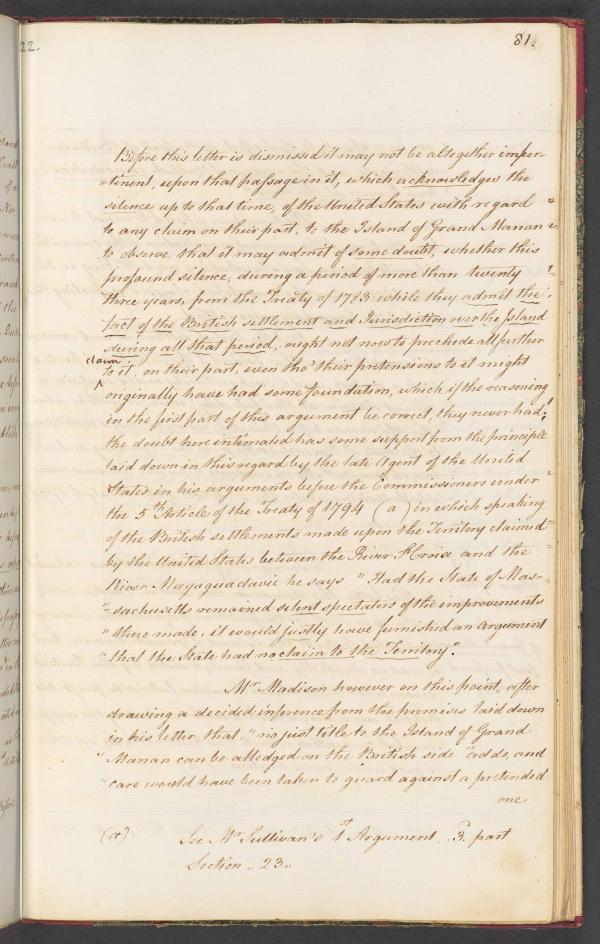 22.
81.
Before this letter is dismissed it may not be altogether imper-
=tinent, upon that passage in it, which acknowledges the
silence up to that time, of the United States with regard
to any claim on their part, to the Island of Grand Manan
to observe, that it may admit of some doubt, whether this
profound silence, during a period of more than twenty
three years, from the Treaty of 1783 while they admit the
fact of the British settlement and Jurisdiction over the Island
during all that period, ought not now to preclude all further
claim
to it, on their part, even tho' their pretensions to it might
originally have had some foundation, which, if the reasoning
in the first part of this argument be correct, they never had;
the doubt here intimated has some support from the principle
laid down in this regard by the late Agent of the United
States in his arguments before the Commissioners under
the 5th Article of the Treaty of 1794 (a) in which speaking
of the British settlements made upon the Territory claimed
by the United States between the River St Croix and the
River Magaguadavic he says "Had the State of Mas=
"=sachusetts remained silent spectators of the improvements
"there made, it would justly have furnished an argument
"that the State had no claim to the Territory".
Mr Madison however on this point, after
drawing a decided inference from the premises laid down
in his letter that, "no just title to the Island of Grand
"Manan can be alledged on the British side "adds, and
"care would have been taken to guard against a pretended
one
(a) See Mr Sullivan's 1t Argument. 3. part
Section .. 23..